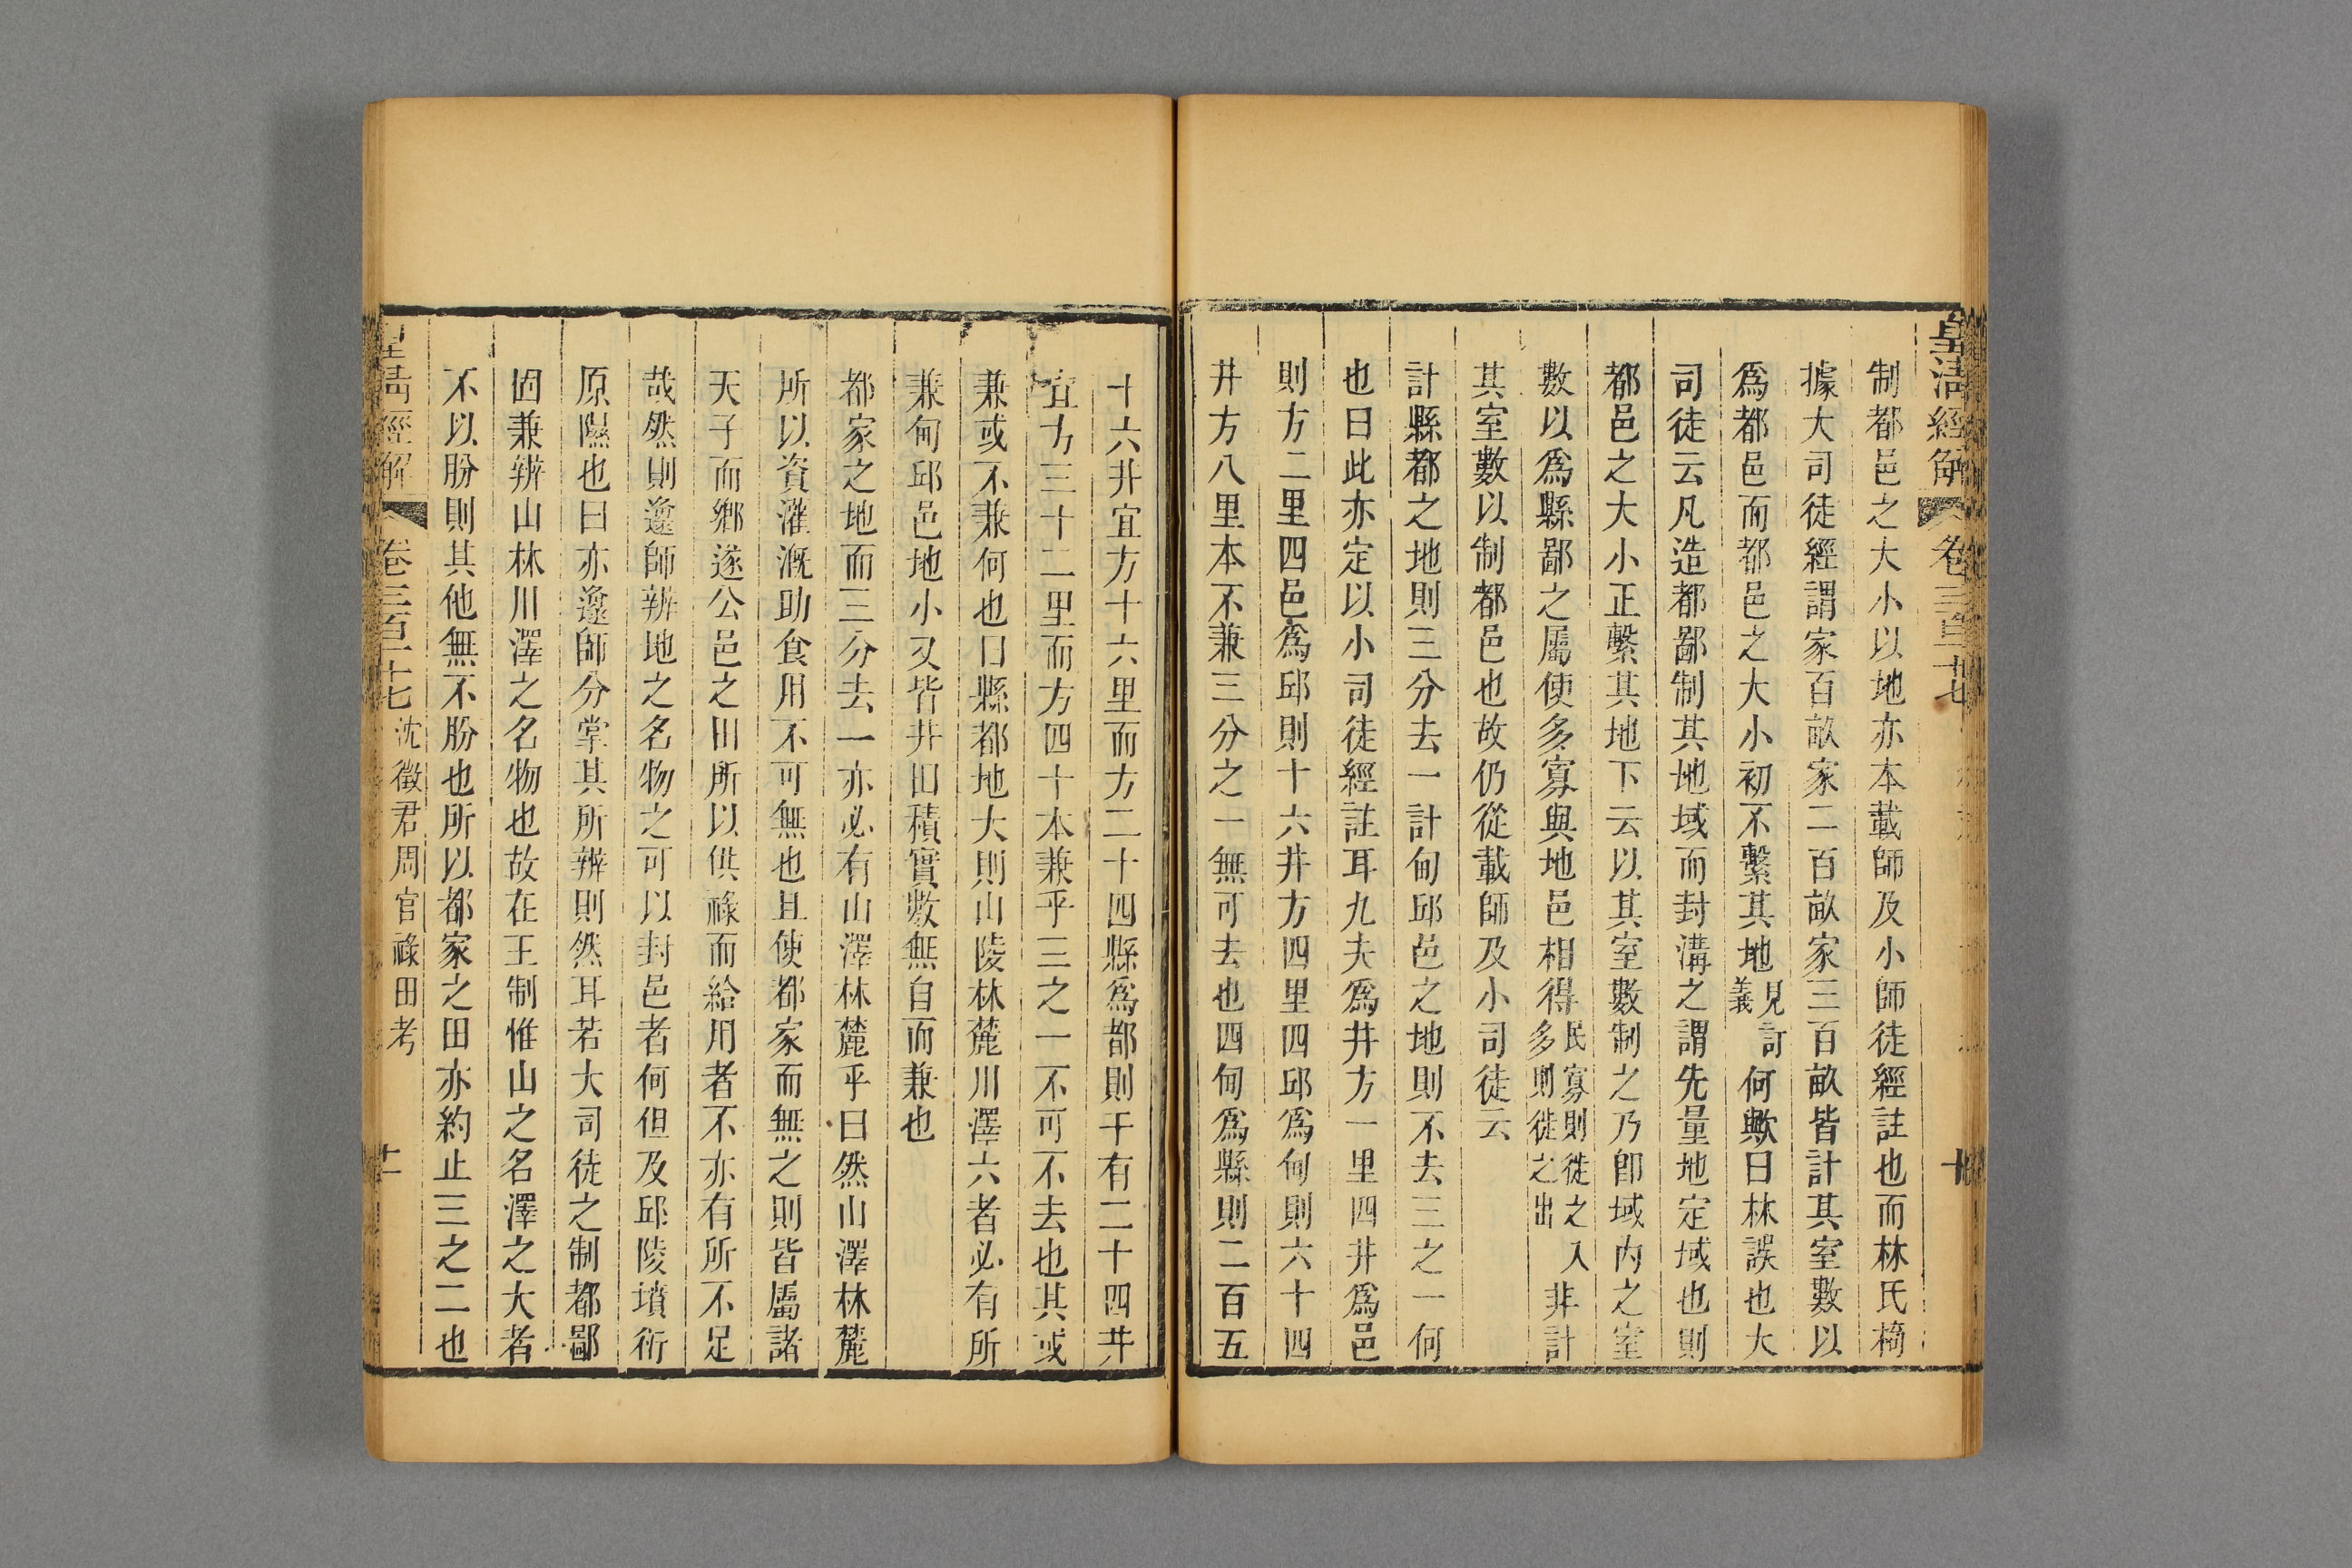 皇清經解 卷三百十七
制都邑之大小以地亦本載師及小師徒經註也而林氏樀
據大司徒經謂家百畝家二百畝家三百畝皆計其室數以
爲都邑而都邑之大小初不繫其地見訂義何歟曰林誤也大
司徒云凡造都鄙制其地域而封溝之謂先量地定域也則
都邑之大小正繫其地下云以其室數制之乃卽域內之室
數以爲縣鄙之屬使多寡與地邑相得民寡則徙之入多則徙之出非計
其室數以制都邑也故仍從載師及小司徒云
計縣都之地則三分去一計甸邱邑之地則不去三之一何
也曰此亦定以小司徒經註耳九夫爲井方一里四井爲邑
則方二里四邑爲邱則十六井方四里四邱爲甸則六十四
井方八里本不兼三分之一無可去也四甸爲縣則二百五
十六井宜方十六里而方二十四縣爲都則千有二十四井
宜方三十二里而方四十本兼乎三之一不可不去也其或
兼或不兼何也曰縣都地大則山陵林麓川澤六者必有所
兼甸邱邑地小又皆井田積實數無自而兼也
都家之地而三分去一亦必有山澤林麓乎曰然山澤林麓
所以資灌漑助食用不可無也且使都家而無之則皆屬諸
天子而鄉遂公邑之田所以供祿而給用者不亦有所不足
哉然則邍師辨地之名物之可以封邑者何但及邱陵墳衍
原隰也曰亦邍師分掌其所辨則然耳若大司徒之制都鄙
固兼辨山林川澤之名物也故在王制惟山之名澤之大者
不以朌則其他無不朌也所以都家之田亦約止三之二也
皇清經解 卷三百十七 沈徵君周官祿田考 十一